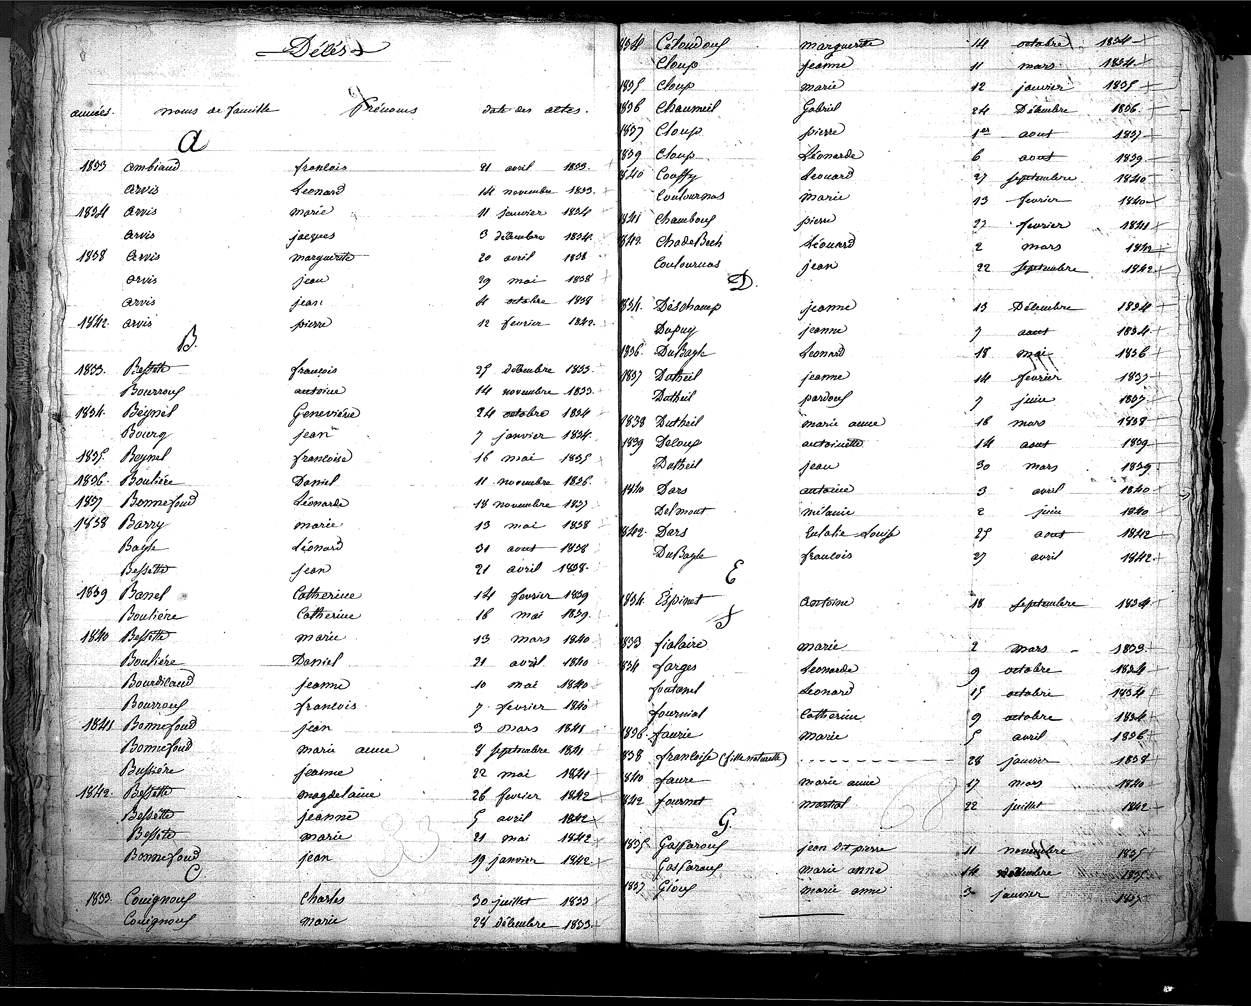 Décès
années. noms de famille Prénoms date des actes.
A
1833 ambiaud francois 21 avril 1833.
arvis Léonard 14 novembre 1833.
1834 arvis marie 11 janvier 1834
arvis jacques 3 décembre 1834.
1838 arvis marguerite 20 avril 1838
arvis jean 29 mai 1838
arvis jean 4 octobre 1838
1842. arvis pierre 12 fevrier 1842.
B.
1833. Bessette francois 25 décembre 1833.
Bourroux antoine 14 novembre 1833.
1834. Beynel Geneviève 24 octobre 1834
Bourg jean 7 janvier 1834.
1835. Beynel francoise 16 mai 1835
1836. Boutière Daniel 11 novembre 1836.
1837. Bonnefond Léonarde 18 novembre 1837.
1838 Barry marie 13 mai 1838
Bayle Léonard 31 aout 1838
Bessette jean 21 avril 1838.
1839 Banel Catherine 14 fevrier 1839
Boutière Catherine 16 mai 1839.
1840 Bessette marie 13 mars 1840
Boutière Daniel 21 avril 1840
Bourdilaud jeanne 10 mai 1840
Bourroux francois 7 fevrier 1840
1841 Bonnefond jean 3 mars 1841
Bonnefond marie anne 8 septembre 1841
Bussière jeanne 22 mai 1841
1842. Bessette magdelaine 26 fevrier 1842
Bessette jeanne 5 avril 1842
Bessette marie 21 mai 1842
Bonnefond jean 19 janvier 1842.
C
1833. Couignoux Charles 30 juillet 1833
Couignoux marie 28 décembre 1833.
33
1834 marguerite 14 octobre 1834
Cloup jeanne 11 mars 1834.
1835 Cloup marie 12 janvier 1835
1836 Chaumeil Gabriel 24 Décembre 1836.
1837 Cloup pierre 1er aout 1837
1839 Cloup Léonarde 6 aout 1839.
1840 Couffy Léonard 27 septembre 1840
Coutournas marie 13 fevrier 1840
1841 Chamboux pierre 27 fevrier 1841
1842. ChadeBech Léonard 2 mars 1842
Coutournas jean 22 septembre 1842
D.
1834. Deschamp jeanne 13 Décembre 1834
Dupuy jeanne 7 aout 1834
1836. DuBayle Léonard 18 mai 1836
1837 Dutheil jeanne 14 fevrier 1837
Dutheil pardoux 7 juin 1837
1838 Dutheil marie anne 18 mars 1838
1839 Deloup antoinette 14 aout 1839
Dutheil jean 30 mars 1839
1840 Dars antoine 3 avril 1840
Delmont mélanie 2 juin 1840
1842. Dars Eulalie Louise 25 aout 1842
DuBayle francois 27 avril 1842
E
1834 Espinet Antoine 18 septembre 1834
f
1833 fialaire marie 2 mars 1833.
1834 farges Léonarde 9 octobre 1834
fontanel Léonard 15 octobre 1834
fournial Catherine 9 octobre 1834
1836. faurie marie 5 avril 1836
1838 francoise (fille naturelle) 28 janvier 1838
1840 faure marie anne 17 mars 1840
1842 fournet martial 22 juillet 1842
68
G.
1835 Gasparoux jean dit pierre 11 novembre 1835
Gasparoux marie anne 14 1835
1837 Gioux marie anne 3 janvier 1837